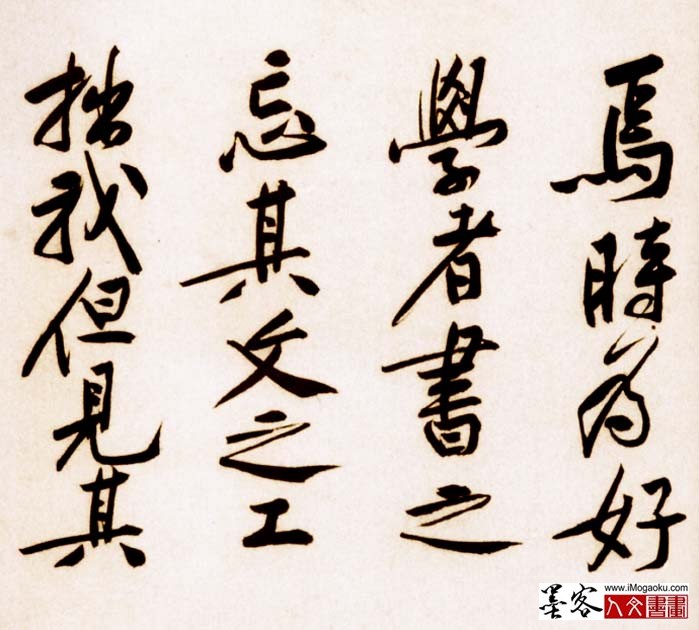 焉時為好
學者書之
忘其文之工
拙我但見其
www.iMogaoku.com
墨客
人文書畫